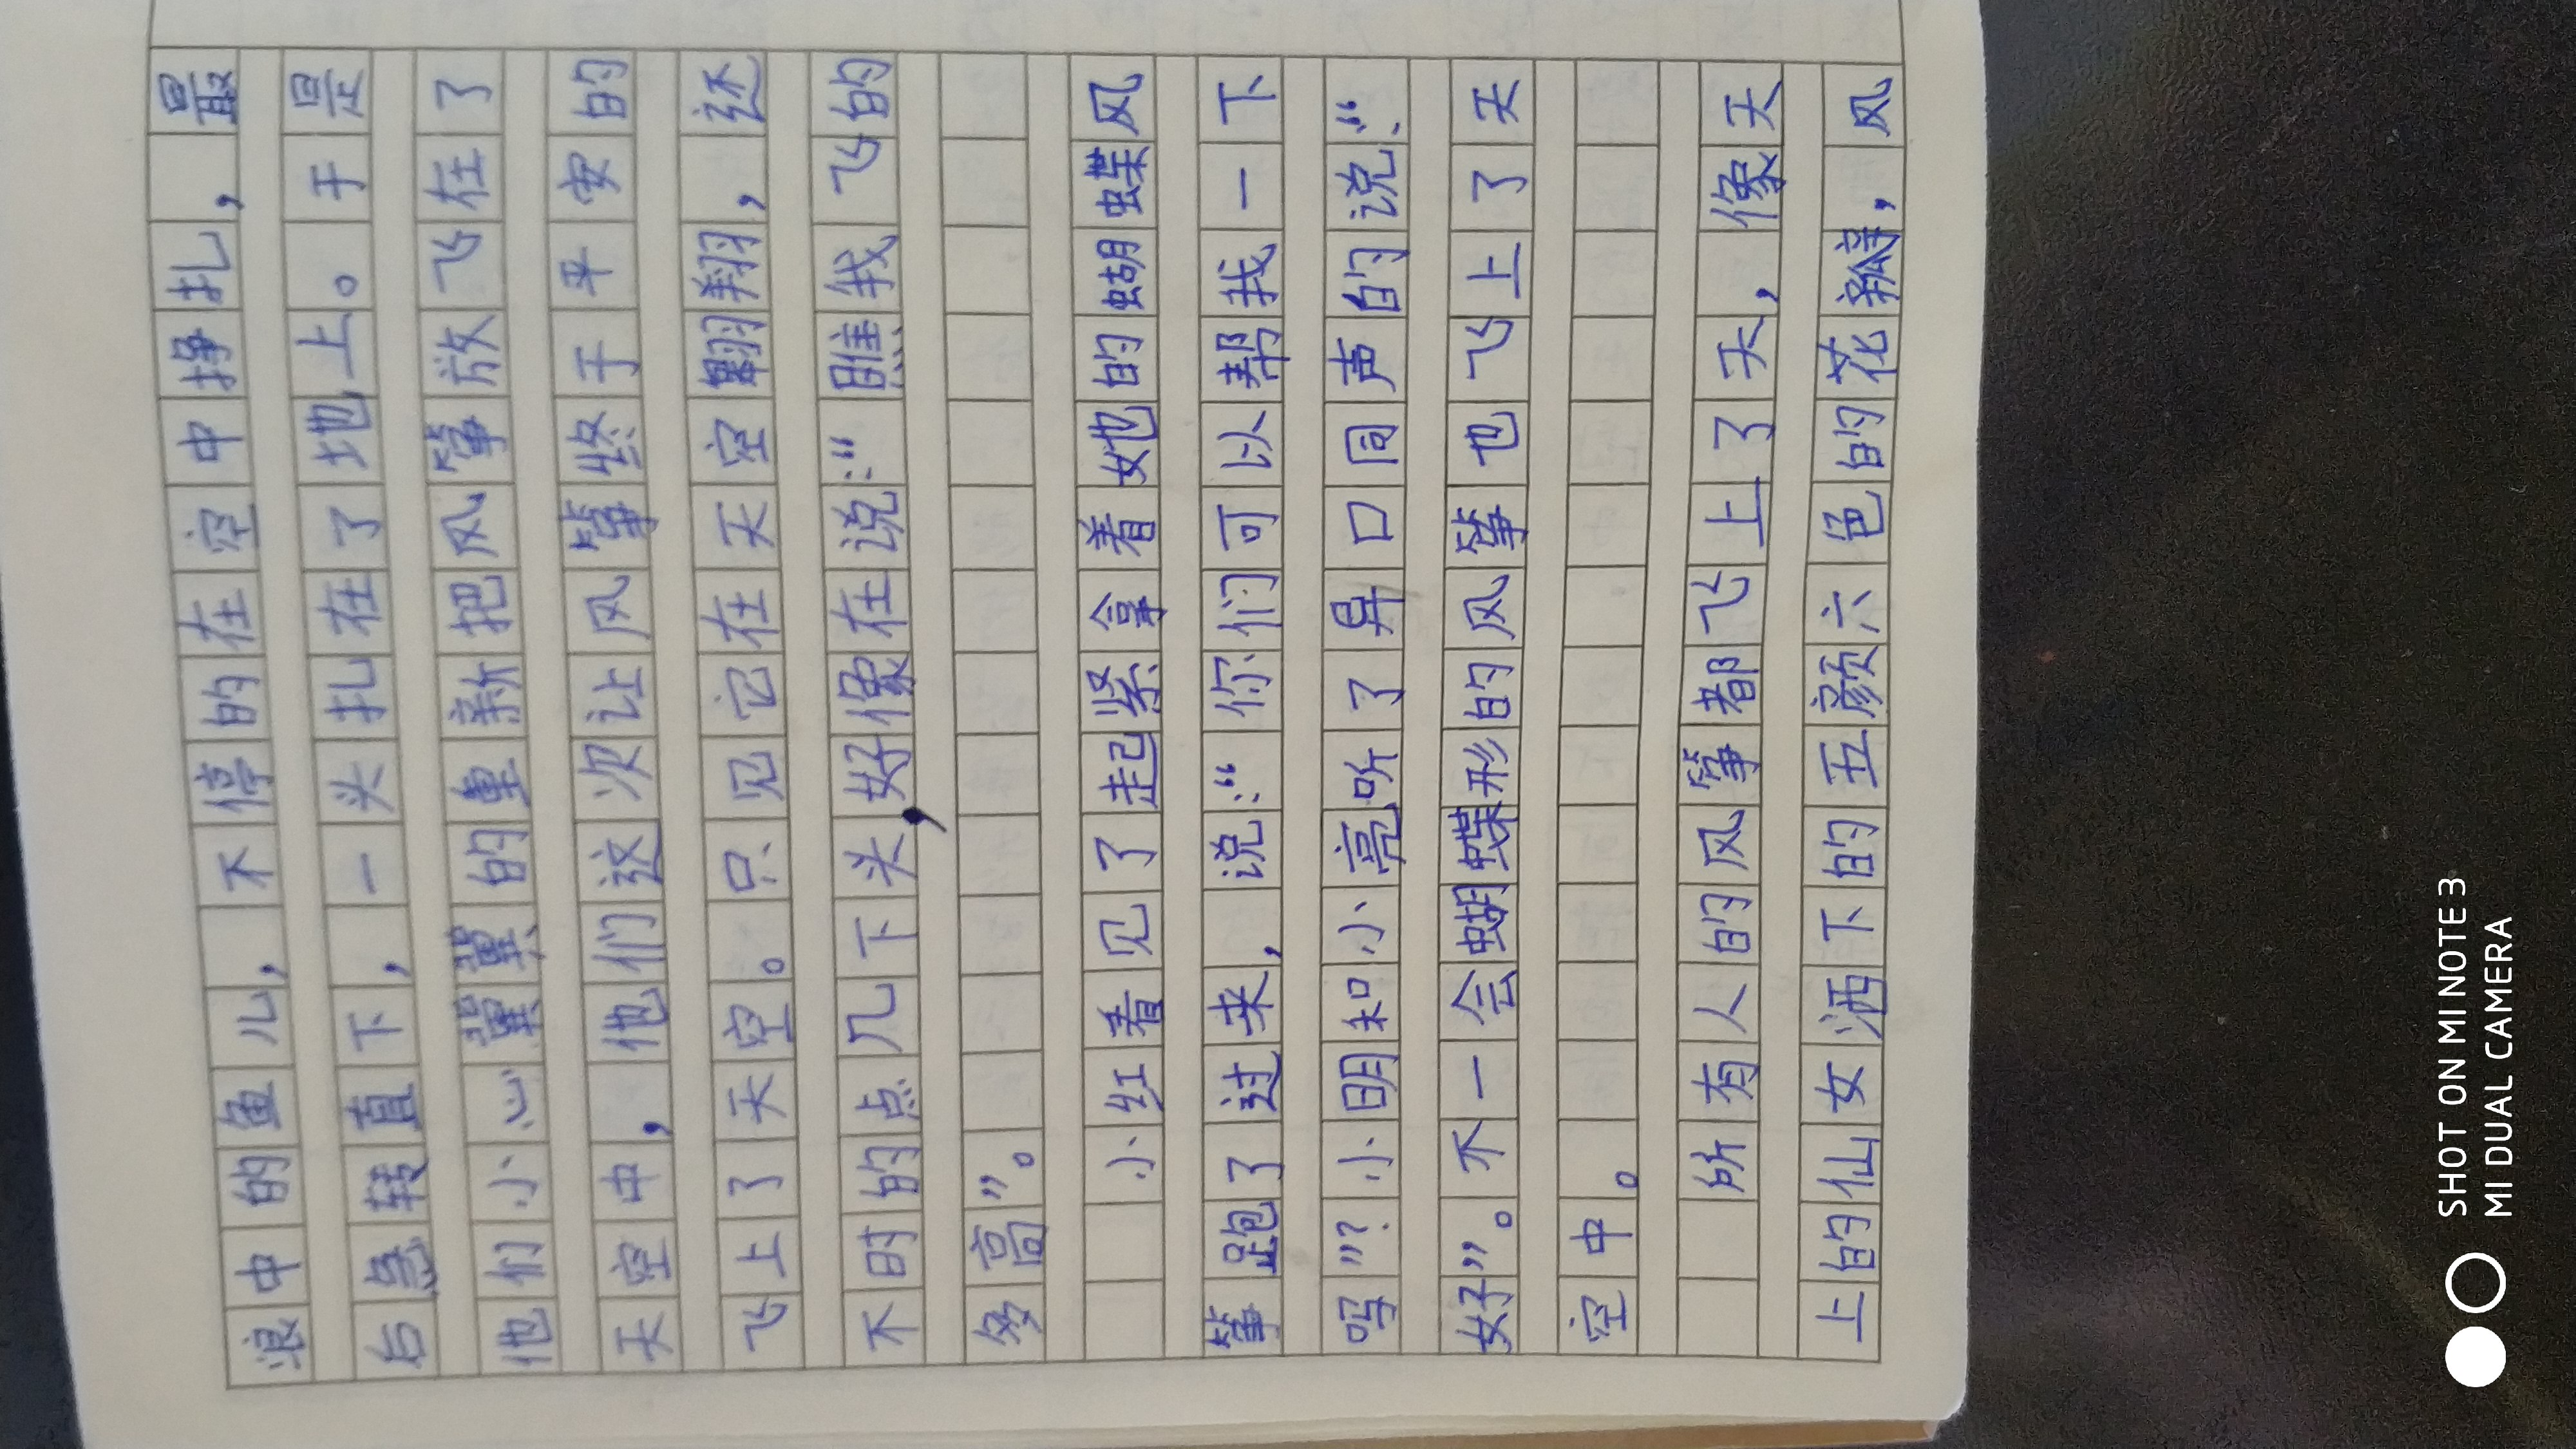 浪中的鱼儿，不停的在空中挣扎，最
后急转直下，一头扎在了地上。于是
他们小心翼翼的重新把风筝放飞在了
天空中，他们这次让风筝终于平安的
飞上了天空。只见它在天空翱翔，还
不时的点几下头，好像在说：“瞧我飞的
多高”。
小红看见了起紧拿着她的蝴蝶风
筝跑了过来，说：“你们可以帮我一下
吗”？小明和小亮听了异口同声的说：“
好”。不一会蝴蝶形的风筝也飞上了天
空中。
所有人的风筝都飞上了天，像天
上的仙女洒下的五颜六色的花瓣，风
SHOT ON MI NOTE 3
MI DUAL CAMERA